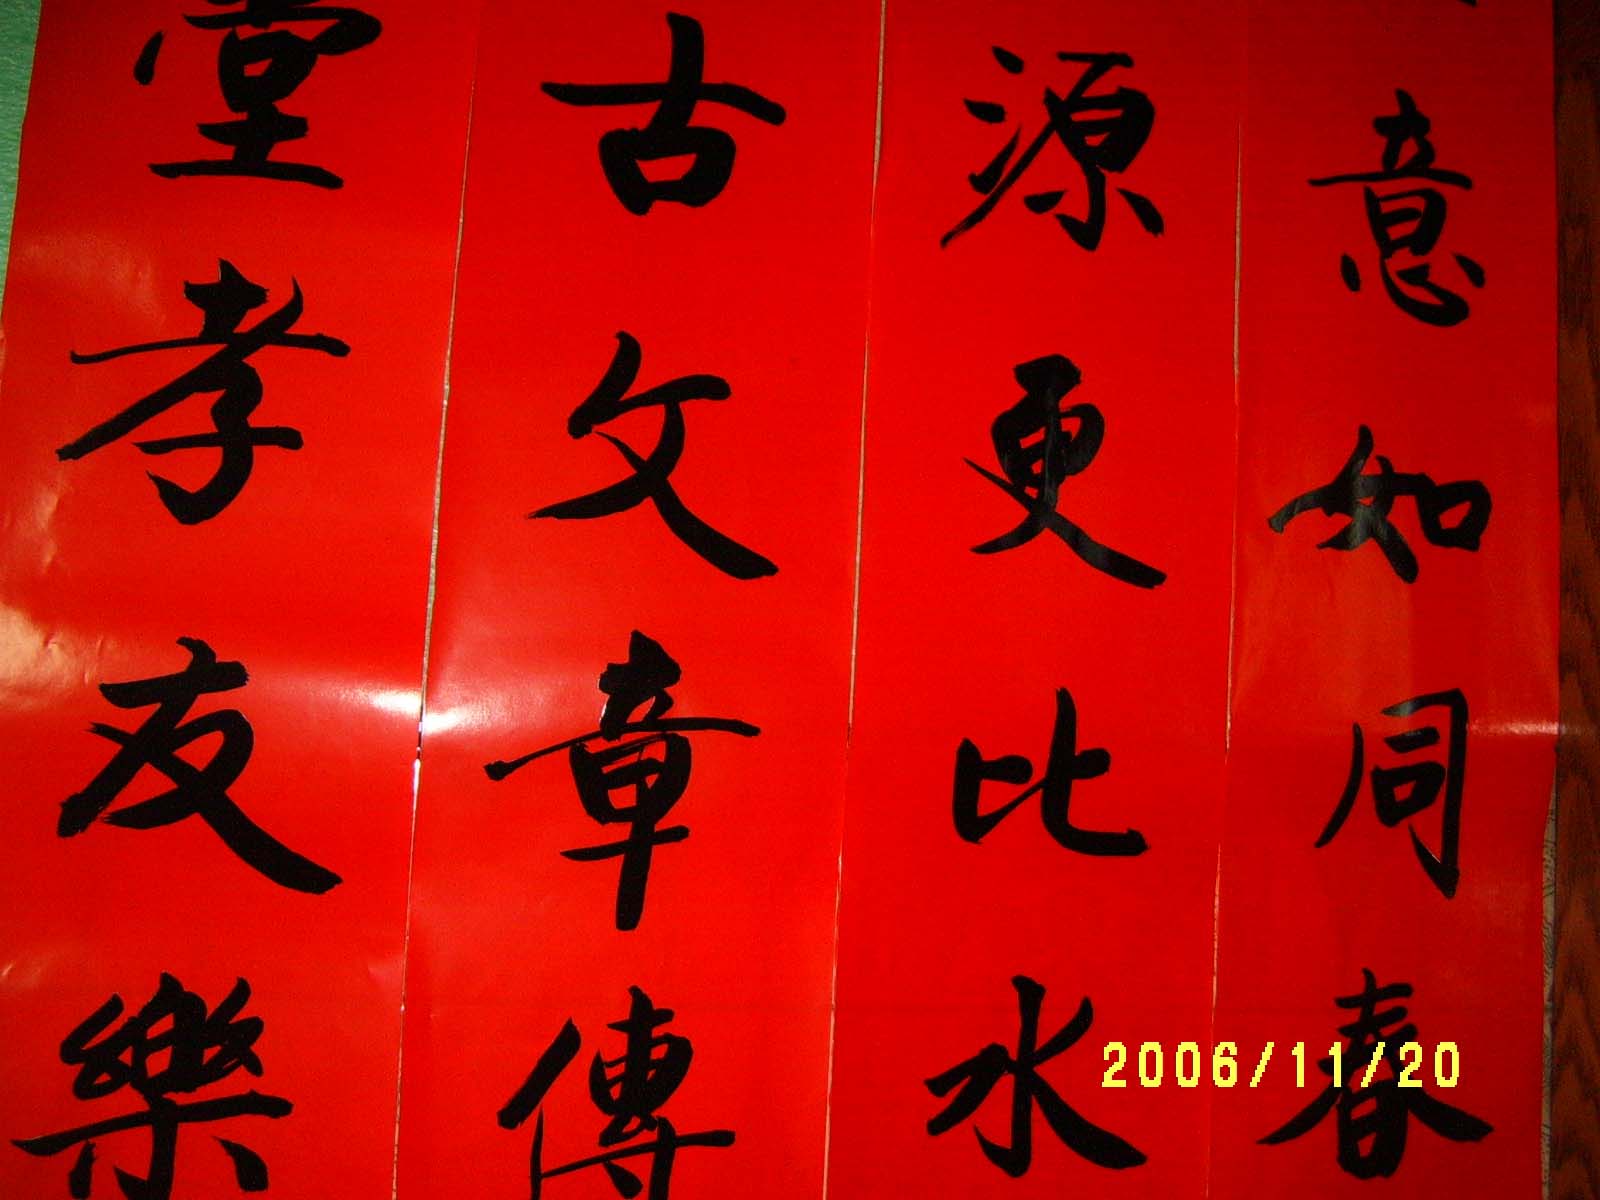 意如同春
源更比水
古文章傳
堂孝友樂
2006/11/20